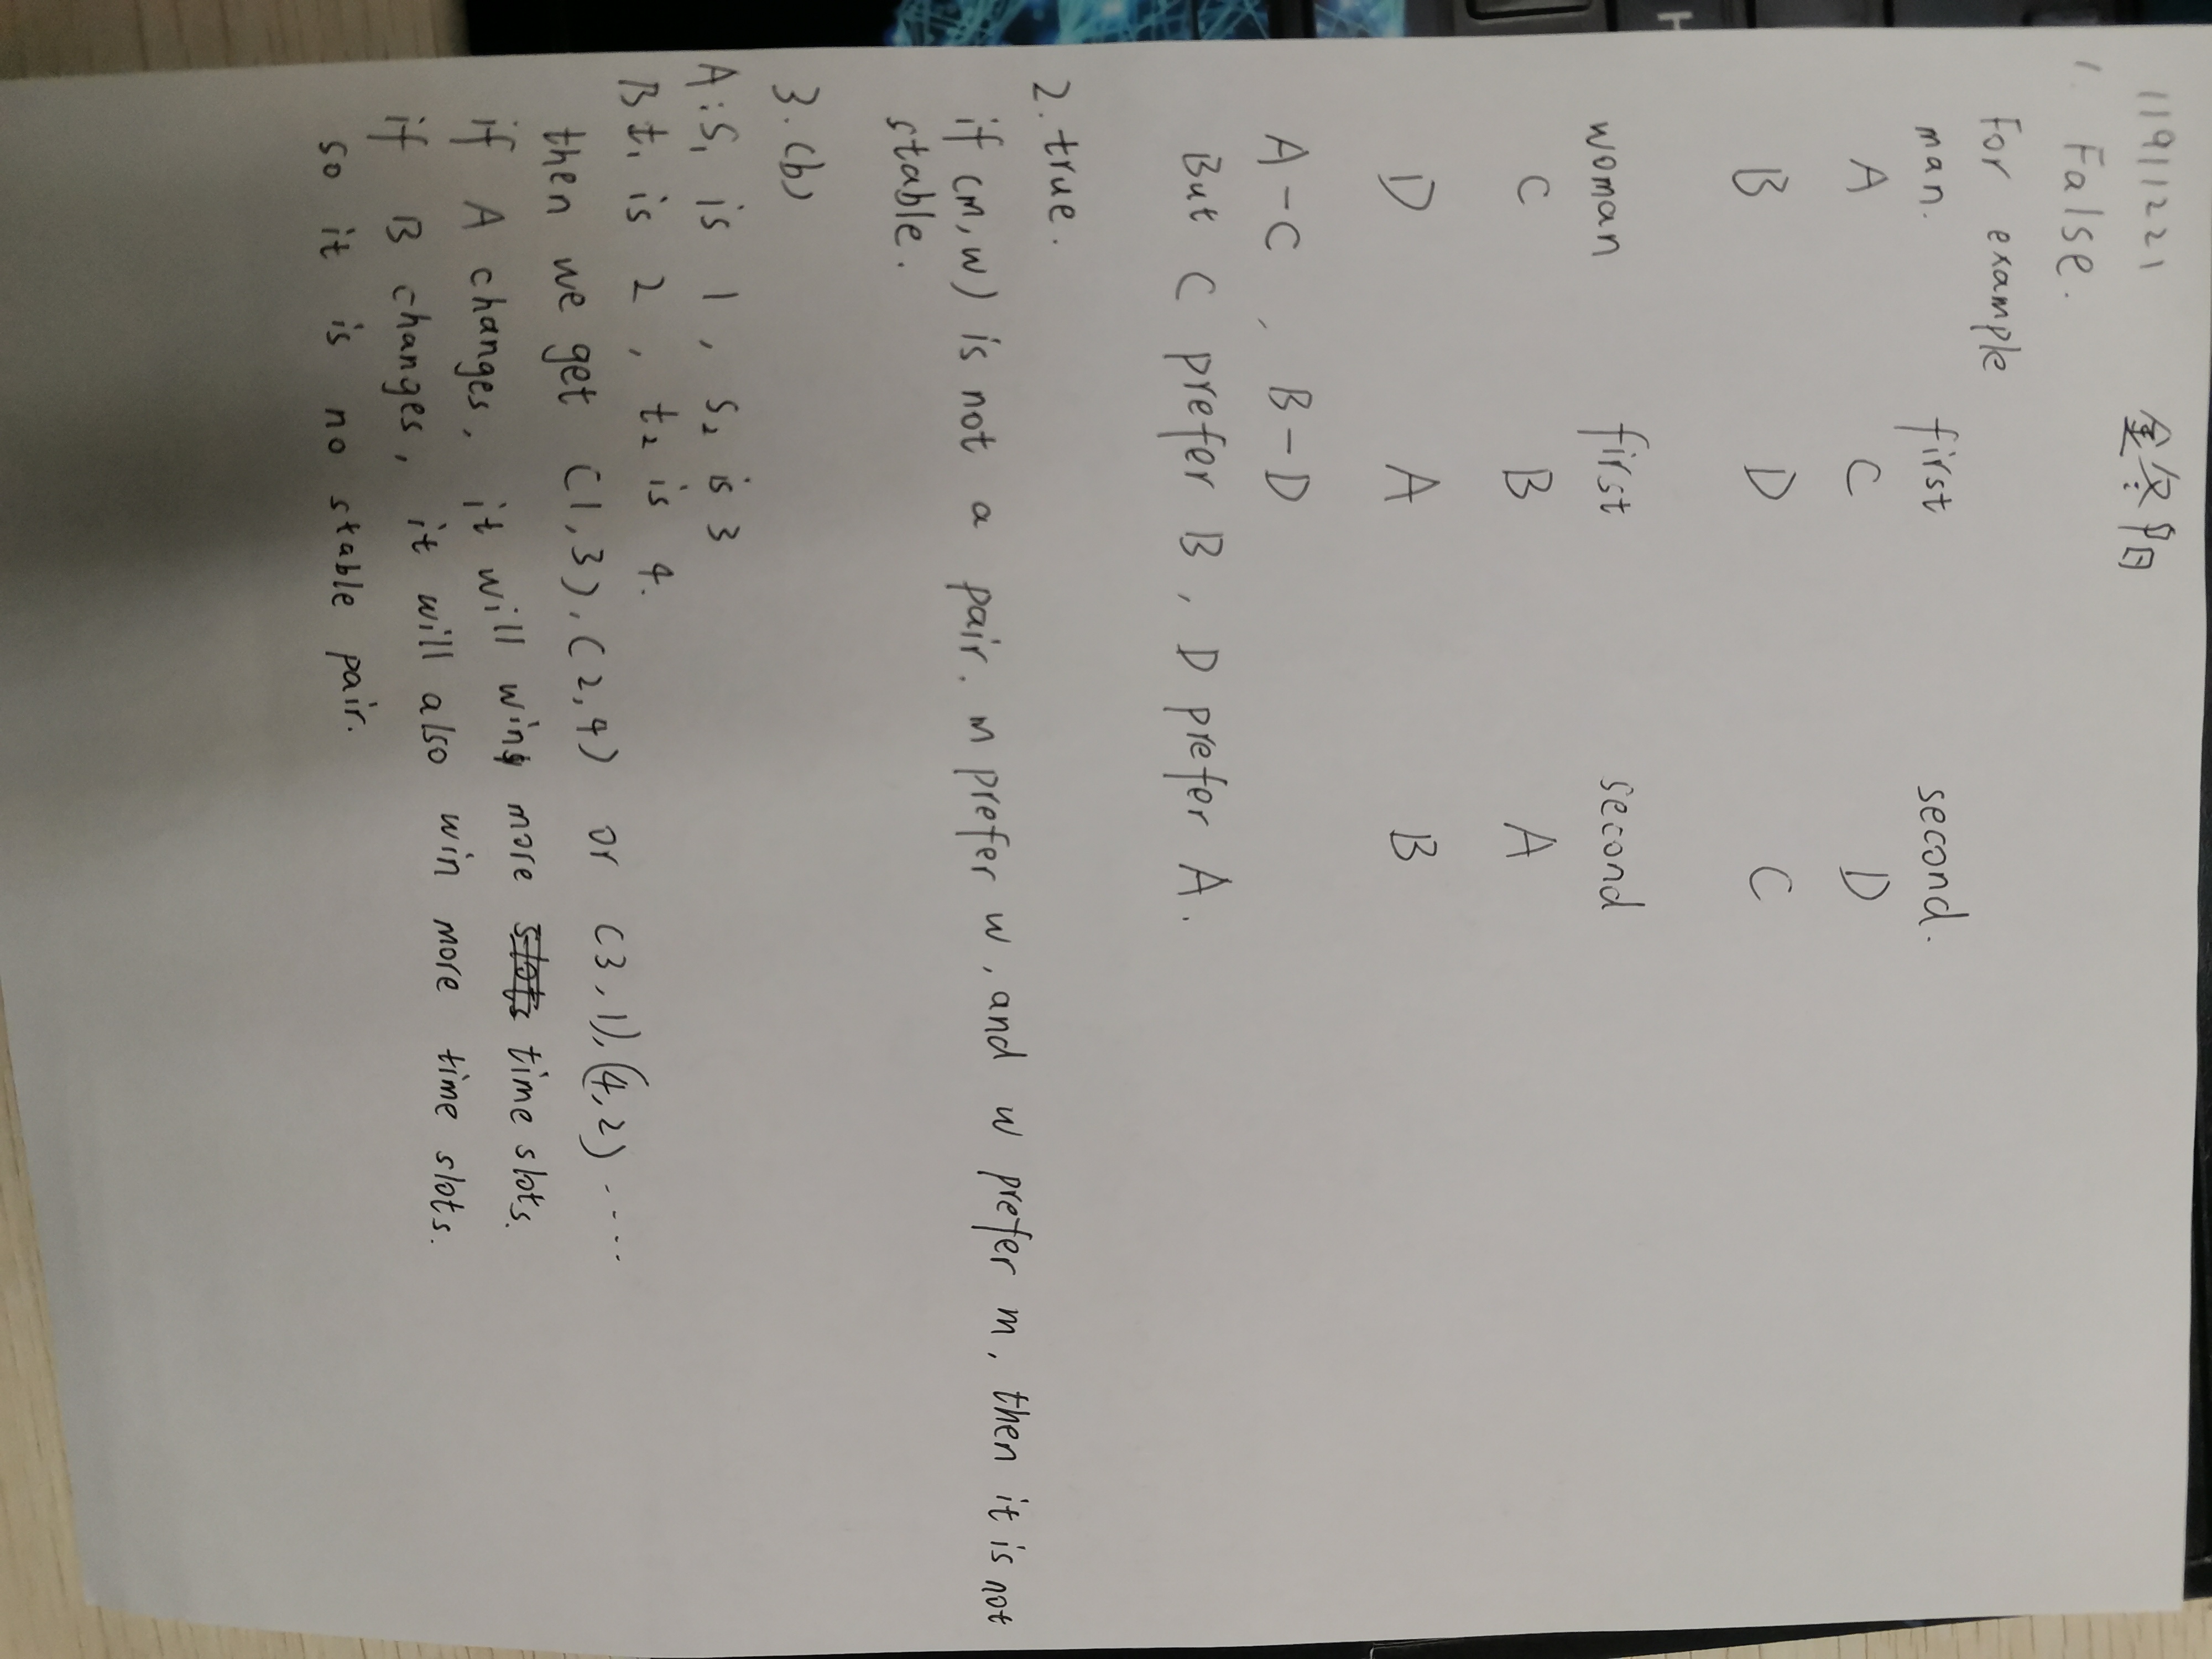 11911221 金奂阳
1. False.
For example
man. first second.
A C D
B D C
woman first second
C B A
D A B
A-C, B-D
But C prefer B, D prefer A.
2. true.
if (m,w) is not a pair. m prefer w, and w prefer m, then it is not
stable.
3.(b)
A: S₁ is 1, S₂ is 3
B t₁ is 2, t₂ is 4.
then we get (1,3),(2,4) or (3,1),(4,2).....
if A changes, it will win more time slots.
if B changes, it will also win more time slots.
so it is no stable pair.
H